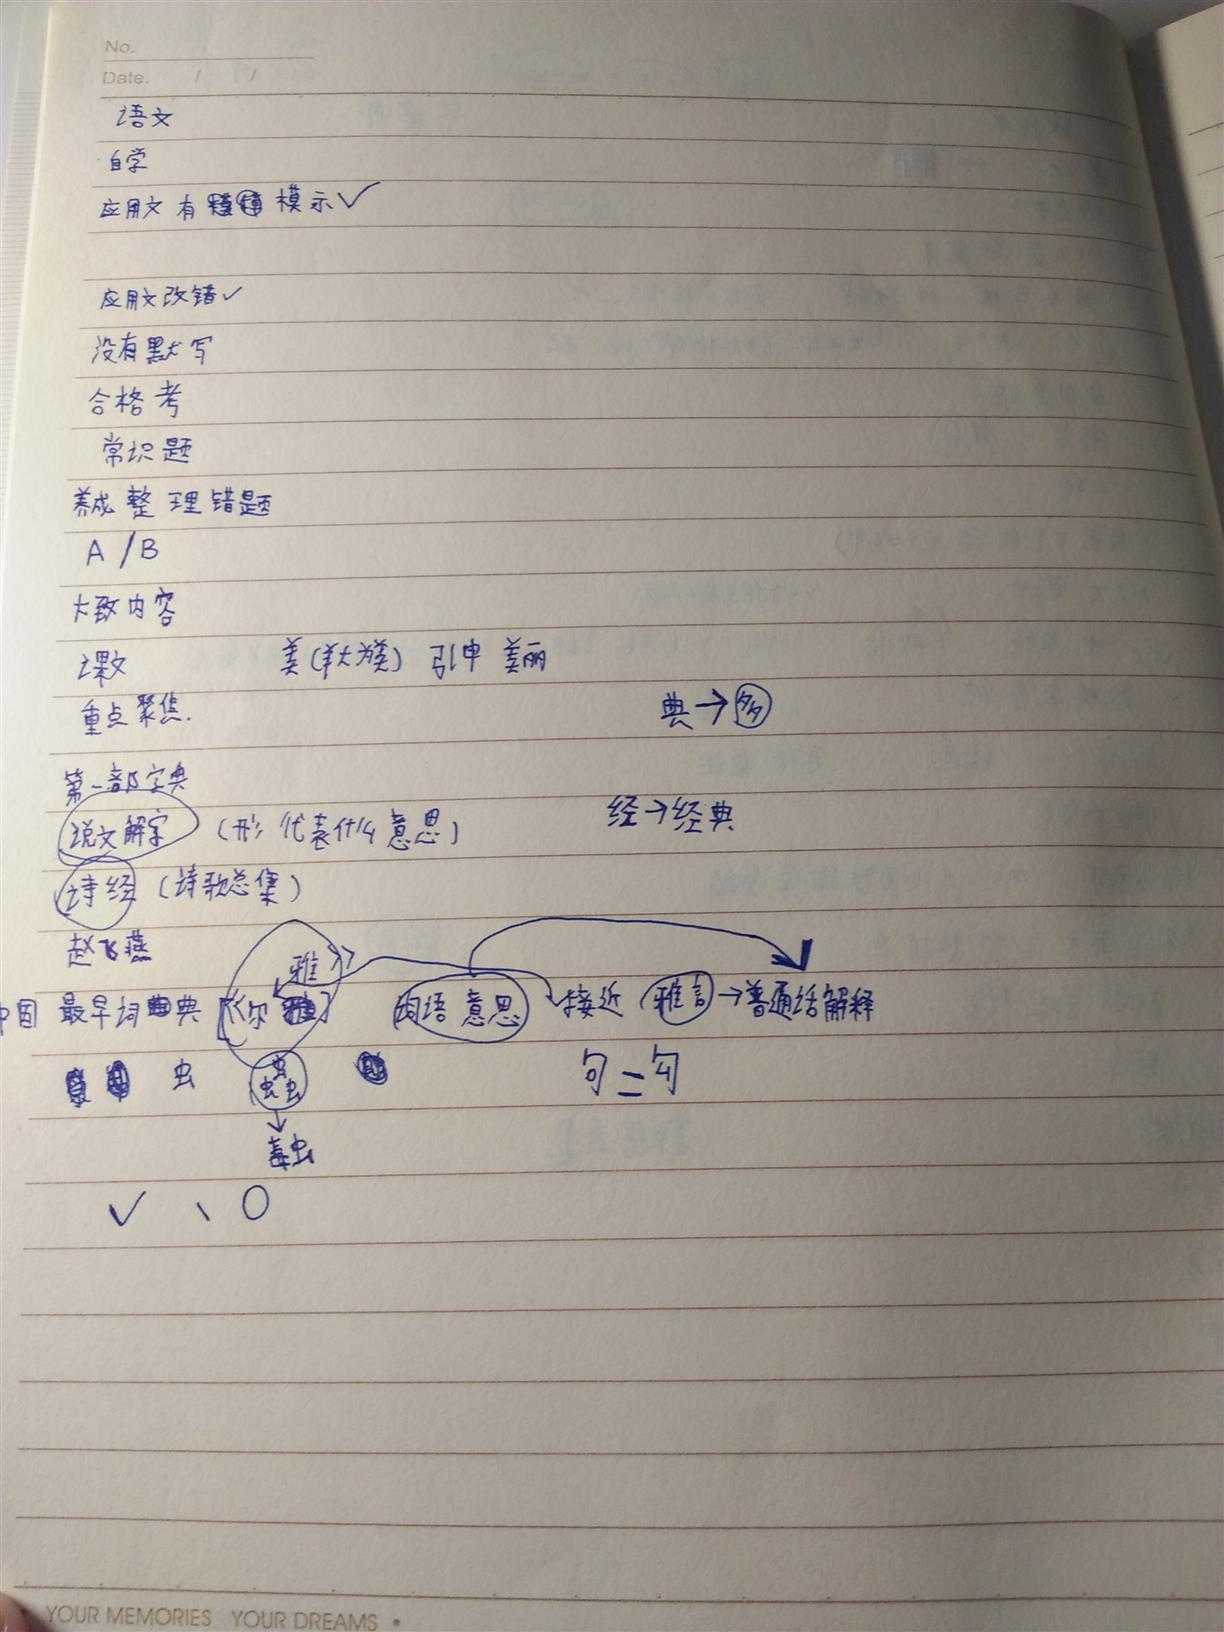 No.
Date. / /
语文
自学
应用文 有 模示✓
应用文改错✓
没有默写
合格考
常识题
养成 整理错题
A / B
大致内容
课文 美(羊大为美) 引申 美丽
重点聚焦. 典→多
第一部字典
说文解字 (形 代表什么意思) 经→经典
诗经 (诗歌总集)
赵飞燕
雅》
中国 最早词典 [《尔 ] 词语 意思 接近 雅言→普通话解释
虫 蟲 句=勾
毒虫
✓ 、 O
YOUR MEMORIES YOUR DREAMS •